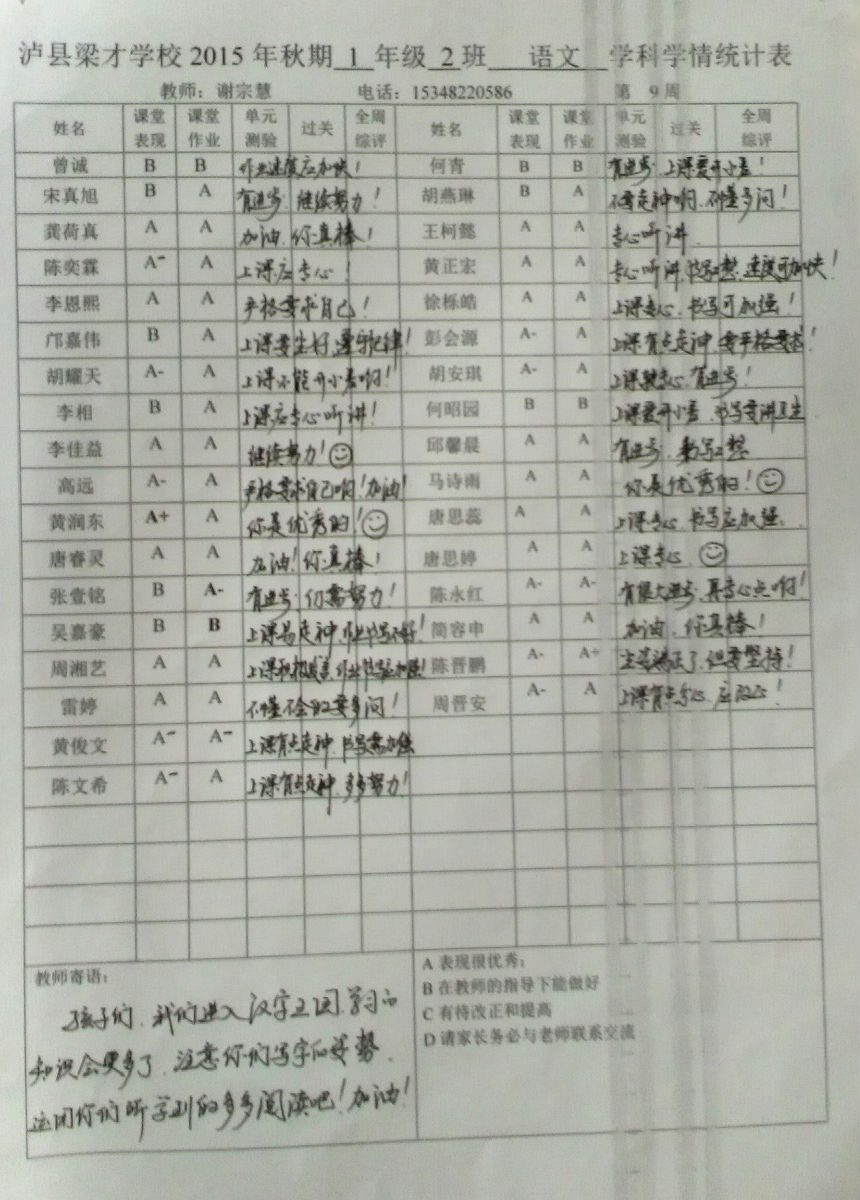 泸县梁才学校2015年秋期 1 年级 2 班 语文 学科学情统计表
教师：谢宗慧 电话：15348220586 第 9 周
姓名 课堂表现 课堂作业 单元测验 过关 全周综评 姓名 课堂表现 课堂作业 单元测验 过关 全周综评
曾诚 B B 作业速度应加快！ 何青 B B 有进步，上课爱开小差！
宋真旭 B A 有进步，继续努力！ 胡燕琳 B A 不要走神啊，不懂多问！
龚荷真 A A 加油，你真棒！ 王柯懿 A A 专心听讲
陈奕霖 A- A 上课应专心！ 黄正宏 A A 专心听讲，书写工整，速度可加快！
李恩熙 A A 严格要求自己！ 徐栎皓 A A 上课专心，书写可加强！
邝嘉伟 B A 上课要坐好，遵守纪律！ 彭会源 A- A 上课有点走神，要严格要求！
胡耀天 A- A 上课不能开小差啊！ 胡安琪 A- A 上课较专心，有进步！
李相 B A 上课应专心听讲！ 何昭园 B B 上课爱开小差，书写要讲卫生
李佳益 A A 继续努力！ 邱馨晨 A A 有进步，书写工整
高远 A- A 严格要求自己啊！加油！ 马诗雨 A A 你是优秀的！
黄润东 A+ A 你是优秀的！ 唐思蕊 A A 上课专心，书写应加强。
唐睿灵 A A 加油！你真棒！ 唐思婷 A A 上课专心
张壹铭 B A- 有进步，仍需努力！ 陈永红 A- A- 有很大进步，再专心点啊！
吴嘉豪 B B 上课易走神，作业书写不好！ 简容申 A A 加油，你真棒！
周湘艺 A A 上课积极发言，作业书写应加强！ 陈晋鹏 A- A+ 坐姿端正了，但要坚持！
雷婷 A A 不懂不会的要多问！ 周晋安 A- A 上课有点分心，应改正！
黄俊文 A- A- 上课有点走神，书写需加强
陈文希 A- A 上课有点走神，多多努力！
教师寄语：
孩子们，我们进入汉字王国，学习的
知识会更多了，注意你们写字的姿势，
运用你们所学到的多多阅读吧！加油！
A 表现很优秀；
B 在教师的指导下能做好
C 有待改正和提高
D 请家长务必与老师联系交流